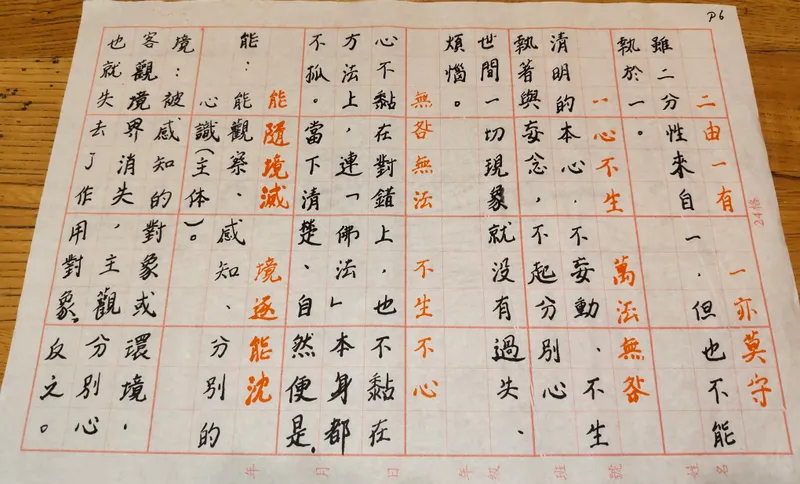 P6
二由一有 一亦莫守
雖二分性來自一，但也不能
執於一。
一心不生 萬法無咎
清明的本心，不妄動、不生
執著與妄念，不起分別心
世間一切現象就没有過失、
煩惱。
無咎無法 不生不心
心不黏在對錯上，也不黏在
方法上，連「佛法」本身都
不孤。當下清楚、自然便是。
能隨境滅 境逐能沈
能：能觀察、感知、分別的
心識(主体)。
境：被感知的對象或環境，
客觀境界消失，主觀分別心
也就失去了作用對象、反之。
24格
年 月 日 年級 班 號 姓名